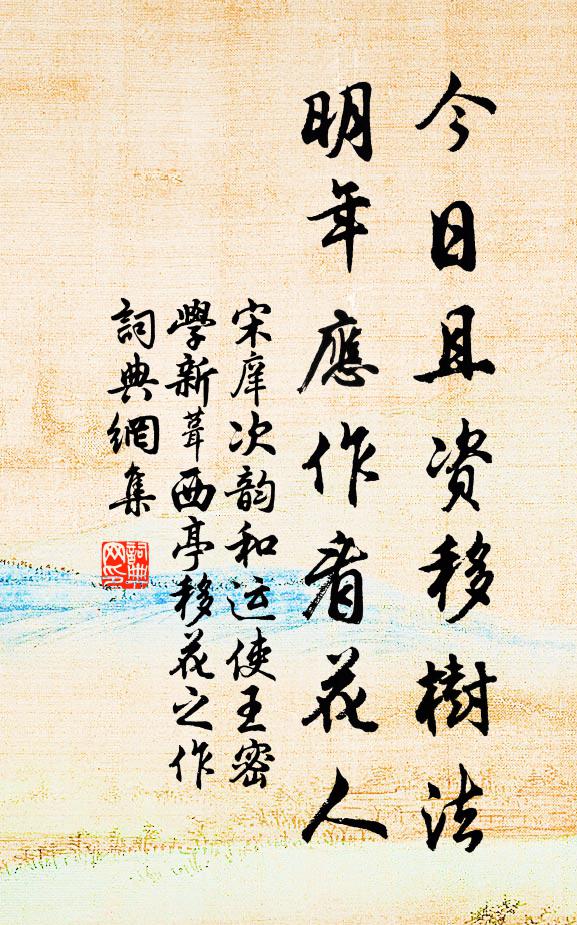 今日且资移樹法
明年應作看花人
宋庠次韵和运使王密
學新葺西亭移花之作
詞典網集
詞典网印